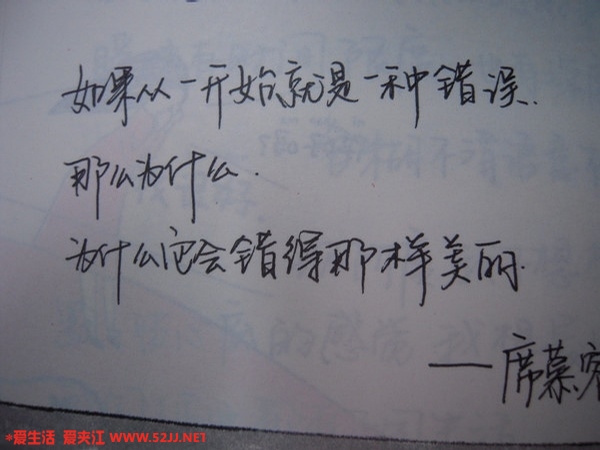 如果从一开始就是一种错误.
那么为什么.
为什么它会错得那样美丽.
——席慕容
*爱生活 爱夹江 WWW.52JJ.NET